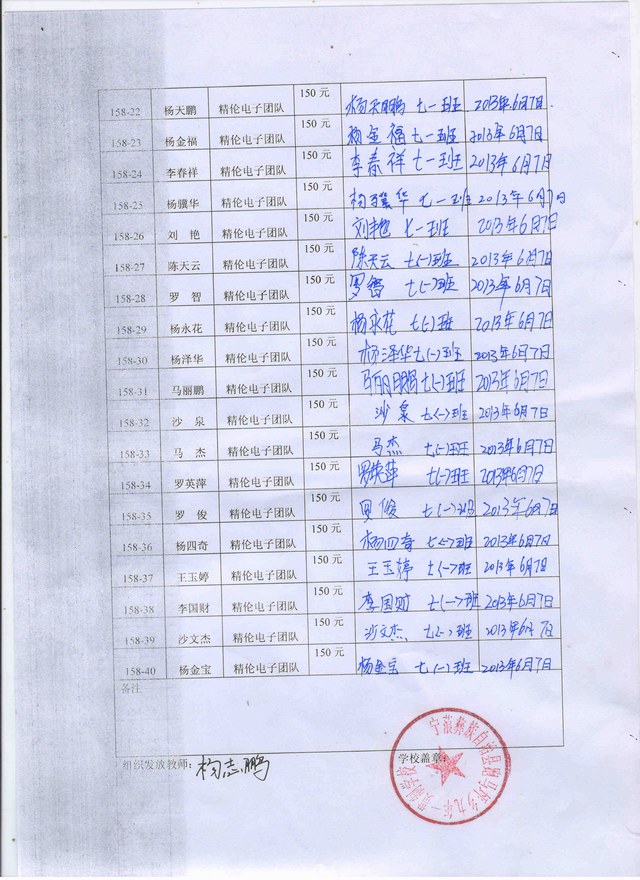 158-22 杨天鹏 精伦电子团队 150 元 杨天鹏 七一班 2013年6月7日
158-23 杨金福 精伦电子团队 150 元 杨金福 七一班 2013年6月7日
158-24 李春祥 精伦电子团队 150 元 李春祥 七一班 2013年6月7日
158-25 杨骥华 精伦电子团队 150 元 杨骥华 七一班 2013年6月7日
158-26 刘 艳 精伦电子团队 150 元 刘艳 七一班 2013年6月7日
158-27 陈天云 精伦电子团队 150 元 陈天云 七(一)班 2013年6月7日
158-28 罗 智 精伦电子团队 150 元 罗智 七(一)班 2013年6月7日
158-29 杨永花 精伦电子团队 150 元 杨永花 七(一)班 2013年6月7日
158-30 杨泽华 精伦电子团队 150 元 杨泽华 七(一)班 2013年6月7日
158-31 马丽鹏 精伦电子团队 150 元 马丽鹏 七(一)班 2013年6月7日
158-32 沙 泉 精伦电子团队 150 元 沙泉 七(一)班 2013年6月7日
158-33 马 杰 精伦电子团队 150 元 马杰 七(一)班 2013年6月7日
158-34 罗英萍 精伦电子团队 150 元 罗英萍 七(一)班 2013年6月7日
158-35 罗 俊 精伦电子团队 150 元 罗俊 七(一)班 2013年6月7日
158-36 杨四奇 精伦电子团队 150 元 杨四奇 七(一)班 2013年6月7日
158-37 王玉婷 精伦电子团队 150 元 王玉婷 七(一)班 2013年6月7日
158-38 李国财 精伦电子团队 150 元 李国财 七(一)班 2013年6月7日
158-39 沙文杰 精伦电子团队 150 元 沙文杰 七(一)班 2013年6月7日
158-40 杨金宝 精伦电子团队 150 元 杨金宝 七(一)班 2013年6月7日
备注
组织发放教师: 杨志鹏 学校盖章:
宁蒗彝族自治县